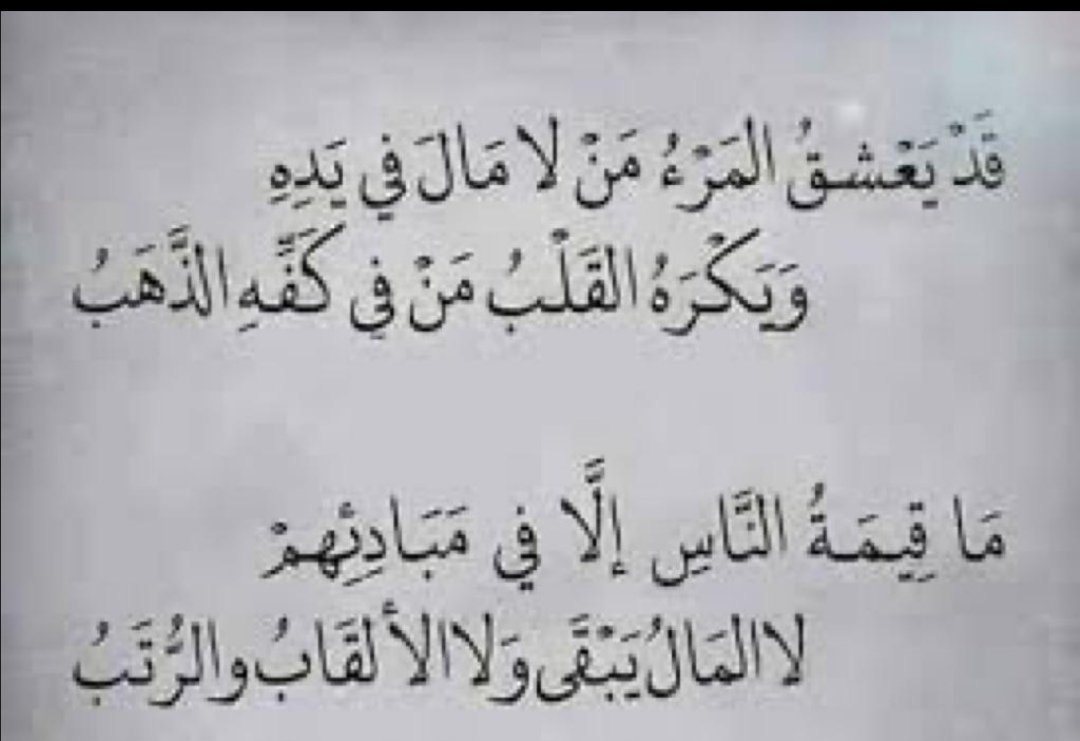 قَدْ يَعْشقُ المَرْءُ مَنْ لا مَالَ في يَدِهِ
وَيَكْرَهُ القَلْبُ مَنْ في كَفِّهِ الذَّهَبُ
مَا قِيمَةُ النَّاسِ إلَّا في مَبَادِئِهمْ
لا المَالُ يَبْقَى وَلا الألقَابُ والرُّتَبُ